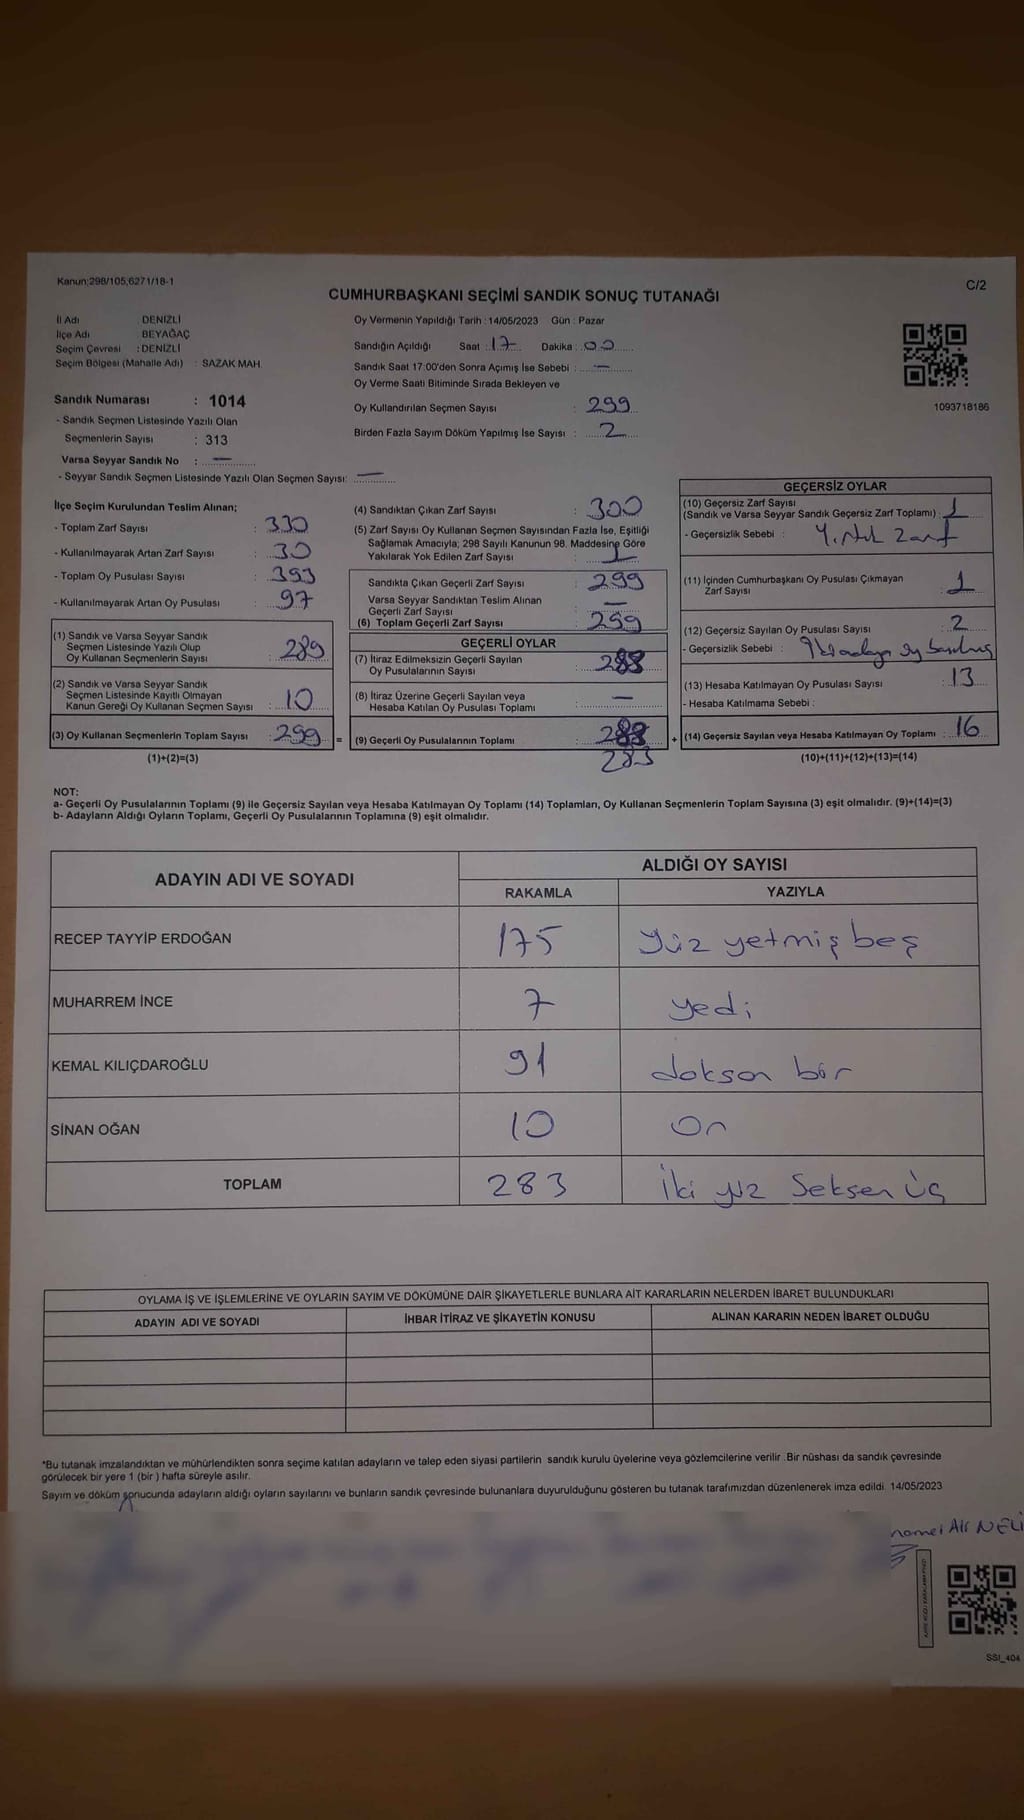 Kanun:298/105,6271/18-1
C/2
CUMHURBAŞKANI SEÇİMİ SANDIK SONUÇ TUTANAĞI
İl Adı DENİZLİ
İlçe Adı BEYAĞAÇ
Seçim Çevresi : DENİZLİ
Seçim Bölgesi (Mahalle Adı) : SAZAK MAH.
Sandık Numarası : 1014
- Sandık Seçmen Listesinde Yazılı Olan
Seçmenlerin Sayısı : 313
Varsa Seyyar Sandık No : —
- Seyyar Sandık Seçmen Listesinde Yazılı Olan Seçmen Sayısı: —
Oy Vermenin Yapıldığı Tarih : 14/05/2023 Gün : Pazar
Sandığın Açıldığı Saat : 17 Dakika : 00
Sandık Saat 17:00'den Sonra Açımış İse Sebebi : —
Oy Verme Saati Bitiminde Sırada Bekleyen ve
Oy Kullandırılan Seçmen Sayısı : 299
Birden Fazla Sayım Döküm Yapılmış İse Sayısı : 2
1093718186
İlçe Seçim Kurulundan Teslim Alınan;
- Toplam Zarf Sayısı : 330
- Kullanılmayarak Artan Zarf Sayısı : 30
- Toplam Oy Pusulası Sayısı : 393
- Kullanılmayarak Artan Oy Pusulası : 97
(1) Sandık ve Varsa Seyyar Sandık
Seçmen Listesinde Yazılı Olup
Oy Kullanan Seçmenlerin Sayısı : 289
(2) Sandık ve Varsa Seyyar Sandık
Seçmen Listesinde Kayıtlı Olmayan
Kanun Gereği Oy Kullanan Seçmen Sayısı : 10
(3) Oy Kullanan Seçmenlerin Toplam Sayısı : 299 =
(1)+(2)=(3)
(4) Sandıktan Çıkan Zarf Sayısı : 300
(5) Zarf Sayısı Oy Kullanan Seçmen Sayısından Fazla İse, Eşitliği
Sağlamak Amacıyla; 298 Sayılı Kanunun 98. Maddesine Göre
Yakılarak Yok Edilen Zarf Sayısı : 1
Sandıkta Çıkan Geçerli Zarf Sayısı : 299
Varsa Seyyar Sandıktan Teslim Alınan
Geçerli Zarf Sayısı : —
(6) Toplam Geçerli Zarf Sayısı : 299
GEÇERLİ OYLAR
(7) İtiraz Edilmeksizin Geçerli Sayılan
Oy Pusulalarının Sayısı : 283
(8) İtiraz Üzerine Geçerli Sayılan veya
Hesaba Katılan Oy Pusulası Toplamı : —
(9) Geçerli Oy Pusulalarının Toplamı : 283 +
283
GEÇERSİZ OYLAR
(10) Geçersiz Zarf Sayısı
(Sandık ve Varsa Seyyar Sandık Geçersiz Zarf Toplamı) : 1
- Geçersizlik Sebebi : Yırtık Zarf
(11) İçinden Cumhurbaşkanı Oy Pusulası Çıkmayan
Zarf Sayısı : 1
(12) Geçersiz Sayılan Oy Pusulası Sayısı : 2
- Geçersizlik Sebebi : oy basılmış
(13) Hesaba Katılmayan Oy Pusulası Sayısı : 13
- Hesaba Katılmama Sebebi :
(14) Geçersiz Sayılan veya Hesaba Katılmayan Oy Toplamı : 16
(10)+(11)+(12)+(13)=(14)
NOT:
a- Geçerli Oy Pusulalarının Toplamı (9) ile Geçersiz Sayılan veya Hesaba Katılmayan Oy Toplamı (14) Toplamları, Oy Kullanan Seçmenlerin Toplam Sayısına (3) eşit olmalıdır. (9)+(14)=(3)
b- Adayların Aldığı Oyların Toplamı, Geçerli Oy Pusulalarının Toplamına (9) eşit olmalıdır.
ADAYIN ADI VE SOYADI ALDIĞI OY SAYISI
RAKAMLA YAZIYLA
RECEP TAYYİP ERDOĞAN 175 Yüz yetmiş beş
MUHARREM İNCE 7 yedi
KEMAL KILIÇDAROĞLU 91 doksan bir
SİNAN OĞAN 10 On
TOPLAM 283 İki yüz Seksen üç
OYLAMA İŞ VE İŞLEMLERİNE VE OYLARIN SAYIM VE DÖKÜMÜNE DAİR ŞİKAYETLERLE BUNLARA AİT KARARLARIN NELERDEN İBARET BULUNDUKLARI
ADAYIN ADI VE SOYADI İHBAR İTİRAZ VE ŞİKAYETİN KONUSU ALINAN KARARIN NEDEN İBARET OLDUĞU
*Bu tutanak imzalandıktan ve mühürlendikten sonra seçime katılan adayların ve talep eden siyasi partilerin sandık kurulu üyelerine veya gözlemcilerine verilir. Bir nüshası da sandık çevresinde
görülecek bir yere 1 (bir ) hafta süreyle asılır.
Sayım ve döküm sonucunda adayların aldığı oyların sayılarını ve bunların sandık çevresinde bulunanlara duyurulduğunu gösteren bu tutanak tarafımızdan düzenlenerek imza edildi. 14/05/2023
Ali NELİ
SSI_404